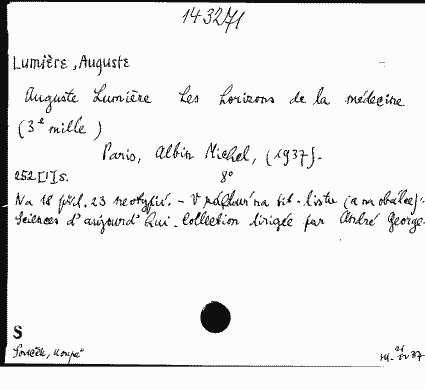 143271
Lumière, Auguste
Auguste Lumière Les horizons de la médecine
(3e mille)
Paris, Albin Michel, (1937).
252 [1] s. 8°
Na 18 příl. 23 - V na tit. listu (a na obálce):
Sciences d'aujourd'hui. Collection dirigée par André George.
S
37